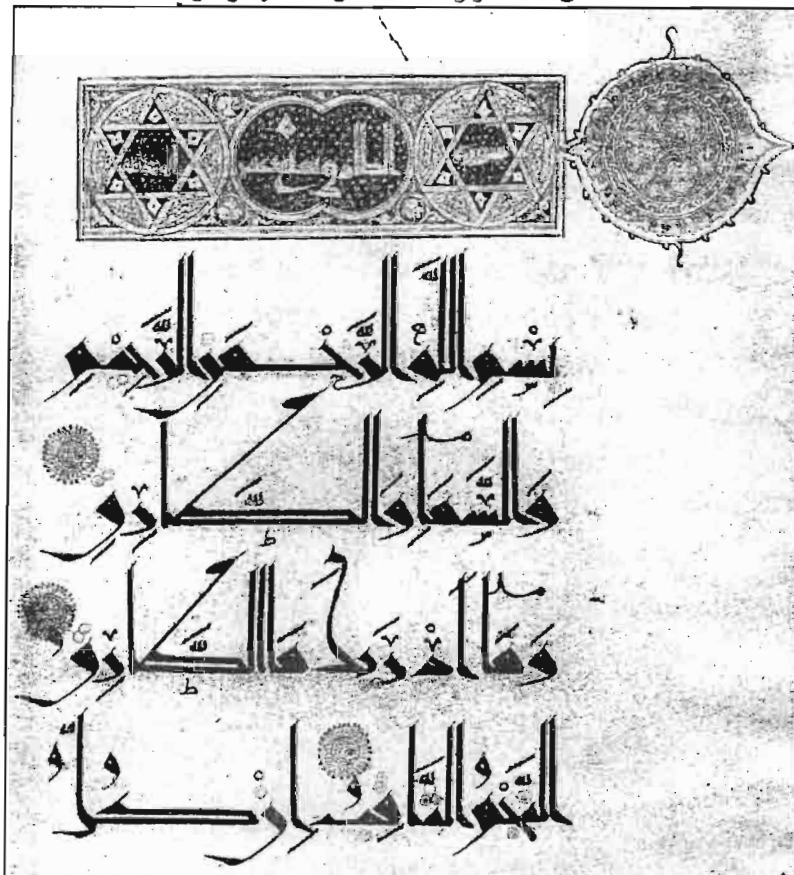 بِسْمِ اللَّهِ الرَّحْمَنِ الرَّحِيمِ
وَالسَّمَاءِ وَالطَّارِقِ
وَمَا أَدْرَيكَ مَا الطَّارِقُ
النَّجْمُ الثَّاقِبُ إِنْ كُلُّ